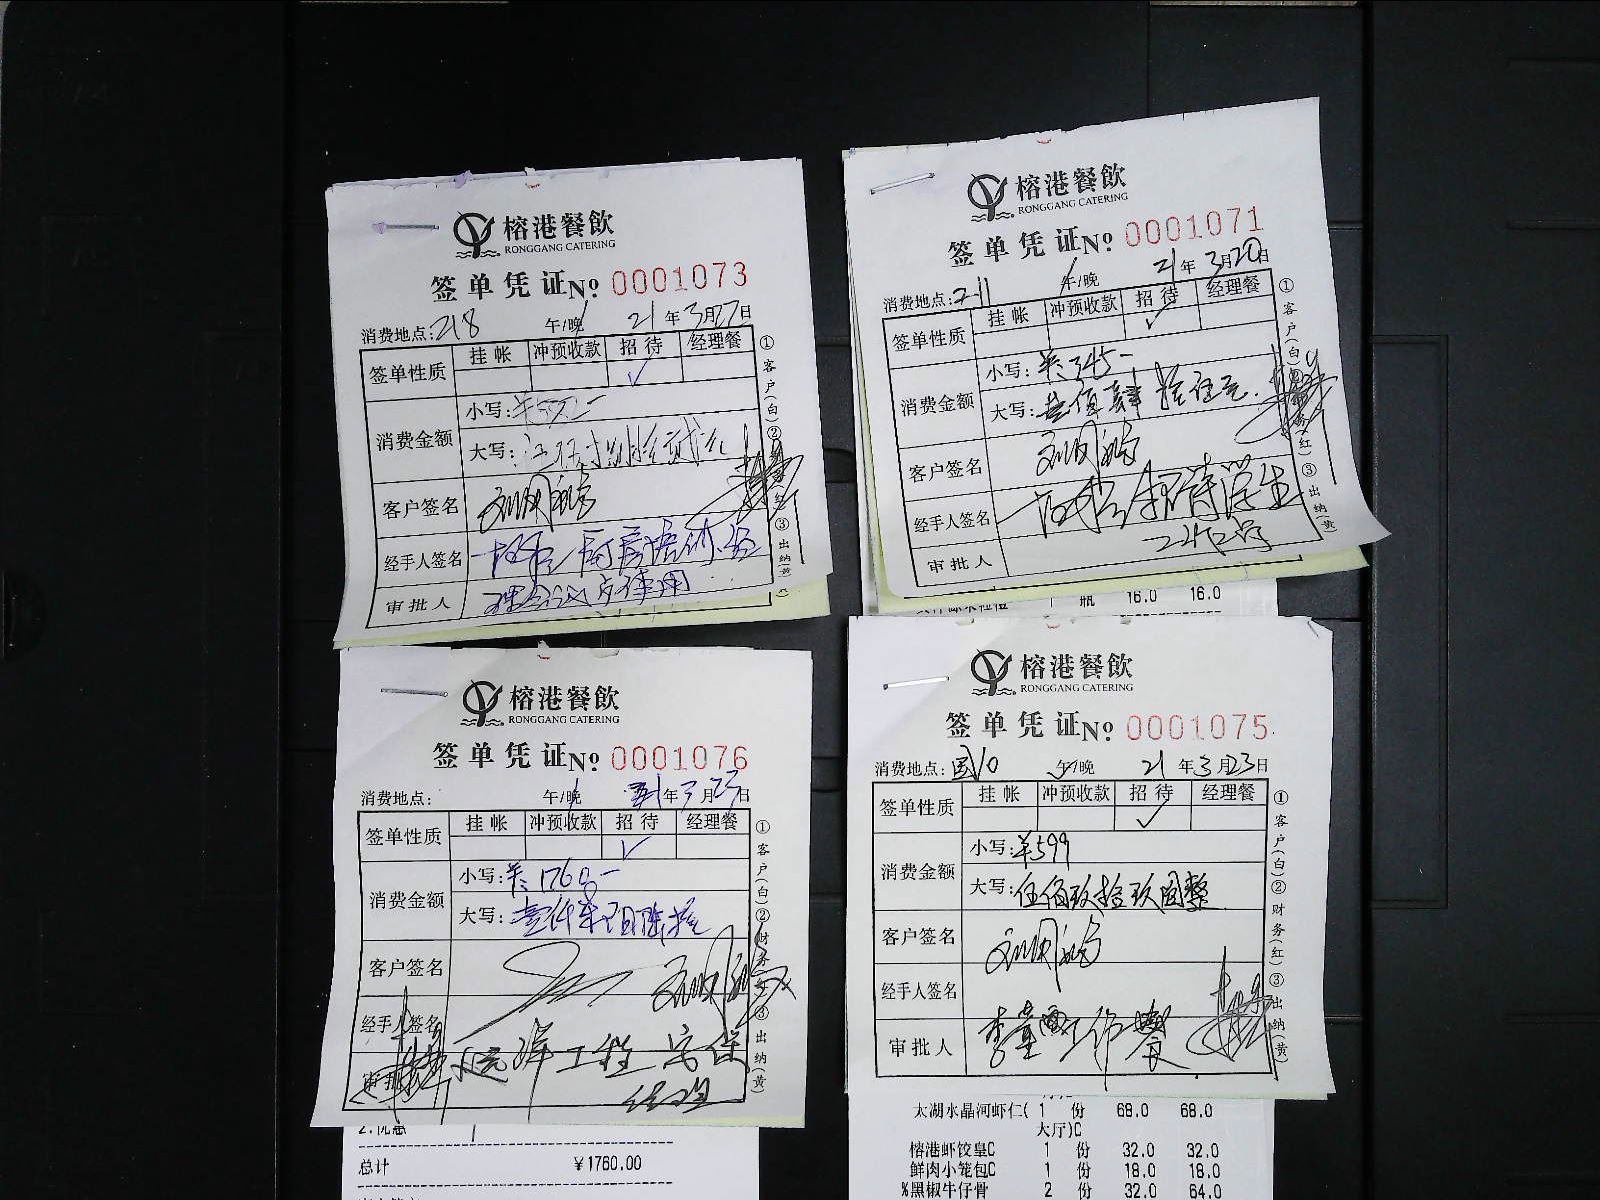 榕港餐飲
RONGGANG CATERING
签单凭证 No 0001073
消费地点: 218 午/晚 21年3月27日
签单性质 挂帐 冲预收款 招待 经理餐
✓
消费金额 小写:
大写:
客户签名
经手人签名
审批人
①客户(白)②财务(红)③出纳(黄)
榕港餐飲
RONGGANG CATERING
签单凭证 No 0001071
消费地点: 2-11 午/晚 21年3月20日
签单性质 挂帐 冲预收款 招待 经理餐
✓
消费金额 小写: ¥:345-
大写: 叁佰肆拾伍元.
客户签名
经手人签名 招待学生
审批人 工作
①客户(白)②财务(红)③出纳(黄)
瓶 16.0 16.0
榕港餐飲
RONGGANG CATERING
签单凭证 No 0001076
消费地点: 午/晚 年3月23日
签单性质 挂帐 冲预收款 招待 经理餐
✓
消费金额 小写: ¥:1760-
大写: 壹仟柒佰陆拾
客户签名
经手人签名
工程 安保
审批人
经理
①客户(白)②财务(红)③出纳(黄)
2.优惠
总计 ¥1760.00
榕港餐飲
RONGGANG CATERING
签单凭证 No 0001075
消费地点: 午/晚 21年3月23日
签单性质 挂帐 冲预收款 招待 经理餐
✓
消费金额 小写: ¥599
大写: 伍佰玖拾玖圆整
客户签名
经手人签名
审批人 李董 工作餐
①客户(白)②财务(红)③出纳(黄)
太湖水晶河虾仁( 1 份 68.0 68.0
大厅)C
榕港虾饺皇C 1 份 32.0 32.0
鲜肉小笼包C 1 份 18.0 18.0
%黑椒牛仔骨 2 份 32.0 64.0